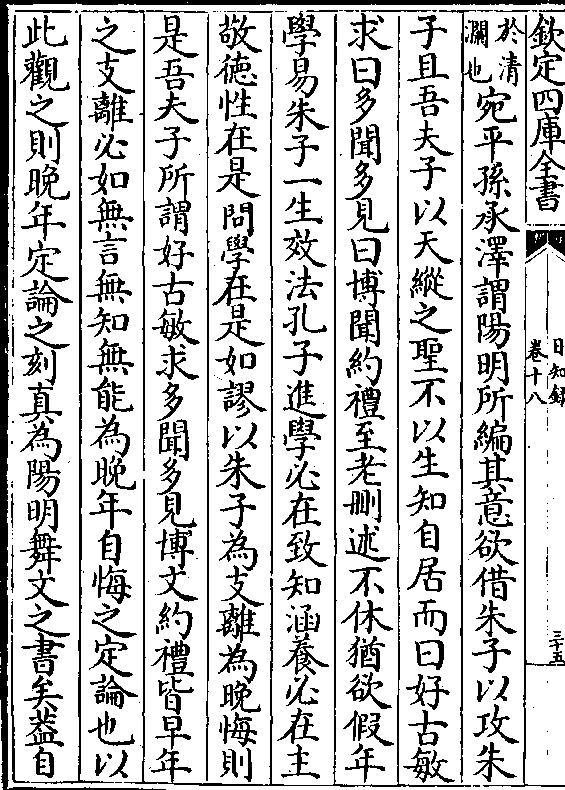 欽定四庫全書
日知錄
卷十八
三十五
於清
瀾也
宛平孫承澤謂陽明所編其意欲借朱子以攻朱
子且吾夫子以天縱之聖不以生知自居而曰好古敏
求曰多聞多見曰博聞約禮至老刪述不休猶欲假年
學易朱子一生效法孔子進學必在致知涵養必在主
敬德性在是問學在是如謬以朱子為支離為晚悔則
是吾夫子所謂好古敏求多聞多見博文約禮皆早年
之支離必如無言無知無能為晚年自悔之定論也以
此觀之則晚年定論之刻真為陽明舞文之書矣葢自